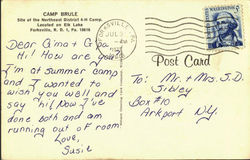 CAMP BRULE
Site of the Northeast District 4-H Camp.
Located on Elk Lake
Forksville, R. D. 1, Pa. 18616
Dear Gma + Gpa,
Hi! How are you?
I'm at summer camp
and I wanted to
wish you well and
say hi! Now I've
done both and am
running out of room!
Love,
Susie
Post Card
To: Mr. + Mrs. J.D.
Box #10
Arkport N.Y.